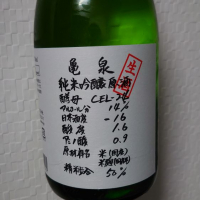 亀泉
生
純米吟醸原酒
酵母 CEL-24
アルコール分 14%
日本酒度 -16
酸度 1.6
アミノ酸 0.9
原材料名 米(国産)
米麹(国産米)
精米歩合 50%